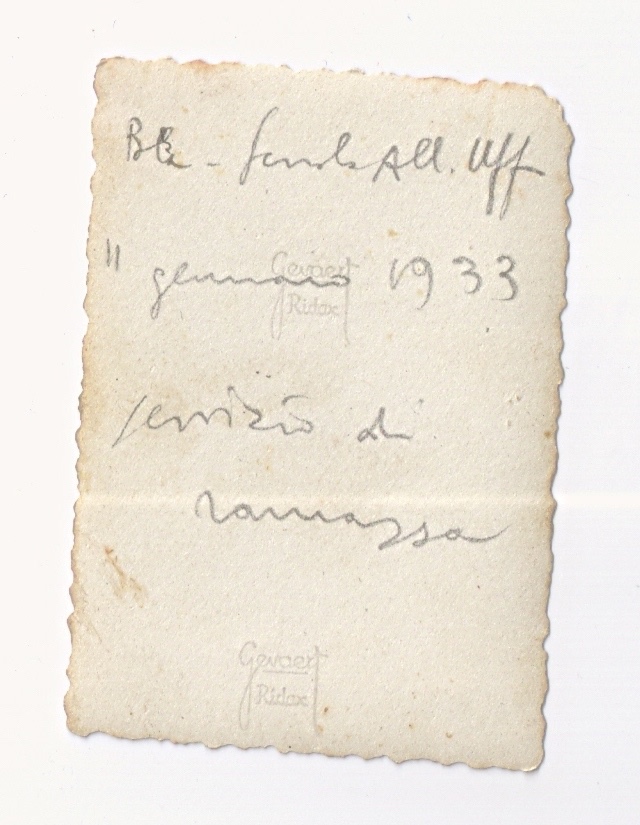 BB - Scuola All. Uff
" gennaio 1933
Gevaert
Ridax
servizio di
ramazza
Gevaert
Ridax